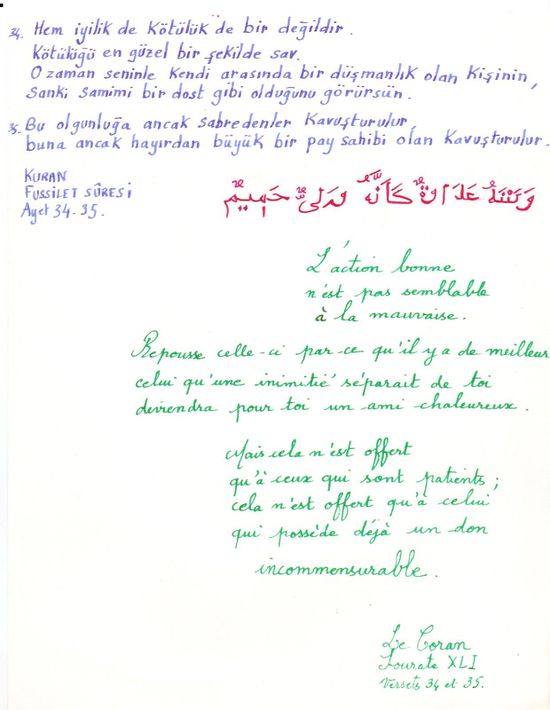 34. Hem iyilik de Kötülük de bir değildir.
Kötülüğü en güzel bir şekilde sav.
O zaman seninle Kendi arasında bir düşmanlık olan Kişinin,
Sanki samimi bir dost gibi olduğunu görürsün.
35. Bu olgunluğa ancak Sabredenler Kavuşturulur,
buna ancak hayırdan büyük bir pay sahibi olan Kavuşturulur.
KURAN
FUSSİLET SÛRESİ
Ayet 34-35.
وَبَيْنَهُ عَدَاوَةٌ كَأَنَّهُ وَلِيٌّ حَمِيمٌ
L'action bonne
n'est pas semblable
à la mauvaise.
Repousse celle-ci par-ce qu'il y a de meilleur
celui qu'une inimitié séparait de toi
deviendra pour toi un ami chaleureux.
Mais cela n'est offert
qu'à ceux qui sont patients ;
cela n'est offert qu'à celui
qui possède déjà un don
incommensurable.
Le Coran
Sourate XLI
Versets 34 et 35.